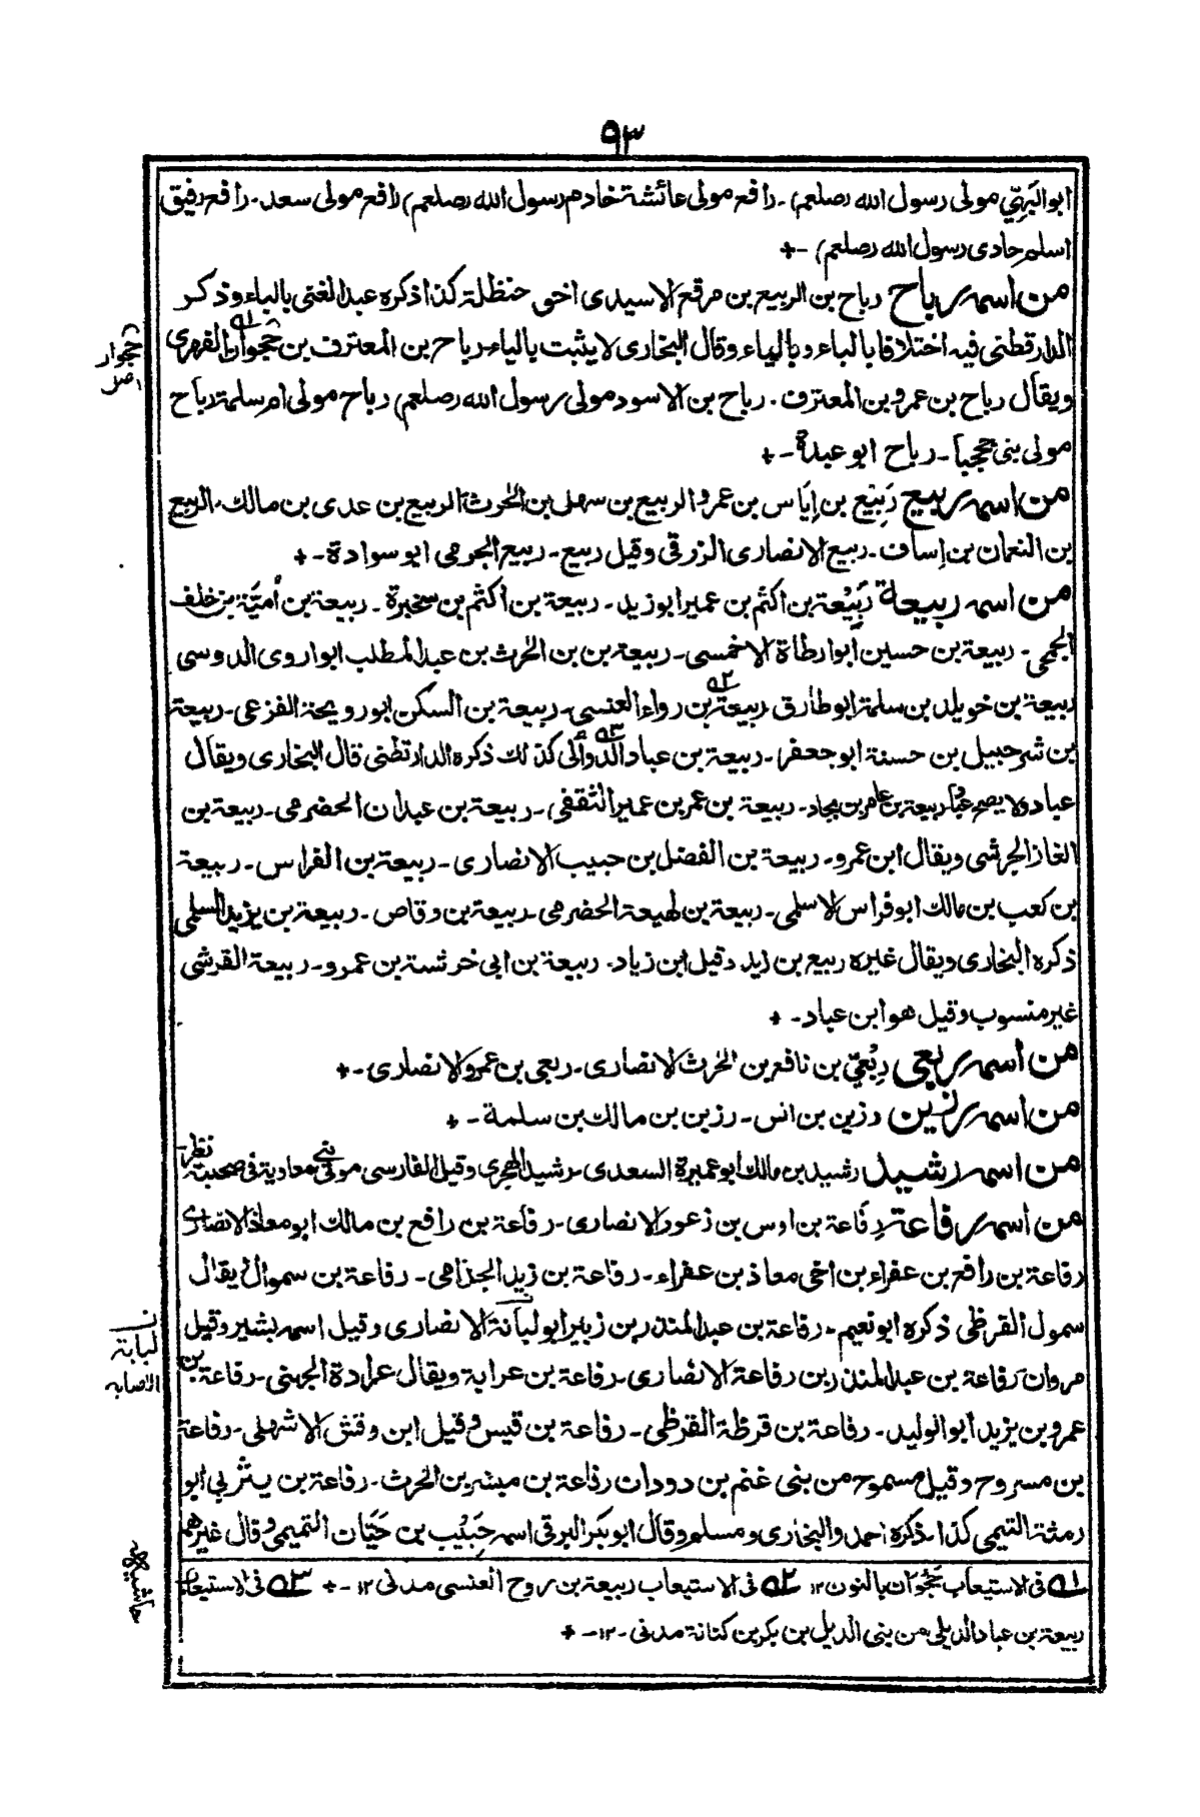 ٩٣
ابو البَهِيّ مولى رسول الله (صلعم) ـ رافع مولى عائشة خادم رسول الله (صلعم) رافع مولى سعد ـ رافع رفيق
اسلم حادى رسول الله (صلعم) ـ +
من اسمه رباح رباح بن الربيع بن مرقع الاسيدى اخى حنظلة كذا ذكره عبد الغنى بالباء وذكر
الدارقطنى فيه اختلافا بالباء وبالياء وقال البخارى لا يثبت بالياء ـ رباح بن المعترف بن حجوان الفهرى
ويقال رباح بن عمرو بن المعترف ـ رباح بن الاسود مولى رسول الله (صلعم) رباح مولى ام سلمة رباح
مولى بنى جحجبا ـ رباح ابو عبدة ـ +
من اسمه ربيع رَبِيْع بن إيَاس بن عمرو الربيع بن سهل بن الحٰرث الربيع بن عدى بن مالك ـ الربيع
بن النعمان بن إساف ـ ربيع الانصارى الزرقى وقيل ربيع ـ ربيع الجرمى ابو سوادة ـ +
من اسمه ربيعة رَبِيْعة بن اكثم بن عمير ابو زيد ـ ربيعة بن اكثم بن سخبرة ـ ربيعة بن أميّة بن خلف
الجمحى ـ ربيعة بن حسين ابو ارطاة الاخمسى ـ ربيعة بن بن الحٰرث بن عبد المطلب ابو اروى الدوسى
ربيعة بن خويلد بن سلمة ابو طارق ربيعة بن رواء العنسى ـ ربيعة بن السكن ابو رويحة الفزعى ـ ربيعة
بن شرحبيل بن حسنة ابو جعفر ـ ربيعة بن عباد الدوألى كذلك ذكره الدارقطنى قال البخارى ويقال
عباد ولا يصح عباد ربيعة بن عامر بن بجاد ـ ربيعة بن عمر بن عمير الثقفى ـ ربيعة بن عبدان الحضرمى ـ ربيعة بن
الغاز الجرشى ويقال ابن عمرو ـ ربيعة بن الفضل بن حبيب الانصارى ـ ربيعة بن الفراس ـ ربيعة
بن كعب بن مالك ابو فراس الاسلمى ـ ربيعة بن لهيعة الحضرمى ـ ربيعة بن وقاص ـ ربيعة بن يزيد السلمى
ذكره البخارى ويقال غيره ربيع بن زيد وقيل ابن زياد ـ ربيعة بن ابى خرشة بن عمرو ـ ربيعة القرشى
غير منسوب وقيل هو ابن عباد ـ +
من اسمه ربعى رِبْعيّ بن نافع بن الحٰرث الانصارى ـ ربعى بن عمرو الانصارى ـ +
من اسمه رزين رزين بن انس ـ رزين بن مالك بن سلمة ـ +
من اسمه رشيد رشيد بن مالك ابو عميرة السعدى ـ رشيد الهجرى وقيل الفارسى مولى بنى معاوية فى صحبته نظر
من اسمه رفاعة رِفَاعة بن اوس بن زعور الانصارى ـ رفاعة بن رافع بن مالك ابو معاذ الانصارى
رفاعة بن رافع بن عفراء بن اخى معاذ بن عفراء ـ رفاعة بن زيد الجذامى ـ رفاعة بن سموال يقال
سمول القرظى ذكره ابو نعيم ـ رفاعة بن عبد المنذر بن زبير ابو لبانة الانصارى وقيل اسمه بشير وقيل
مروان رفاعة بن عبد المنذر بن رفاعة الانصارى ـ رفاعة بن عرابة ويقال عرادة الجهنى ـ رفاعة بن
عمرو بن يزيد ابو الوليد ـ رفاعة بن قرظة القرظى ـ رفاعة بن قيس وقيل ابن وقش الاشهلى ـ رفاعة
بن مسروح وقيل مسموح من بنى غنم بن دودان رفاعة بن مبشر بن الحرث ـ رفاعة بن يثربي ابو
رمثة التيمى كذا ـ ذكره احمد والبخارى ومسلم وقال ابو بكر البرقى اسمه حَبِيْب بن حَيّان التميمى وقال غيرهم
حجوار
اصل
ن
لبابة
الاصابه
حاشيه
٩١ فى الاستيعاب حَجْوَان بالنون ١٢ ٩٢ فى الاستيعاب ربيعة بن روح العنسى مدنى ١٢ ـ + ٩٣ فى الاستيعاب
ربيعة بن عباد الديلى من بنى الديل بن بكر بن كنانة مدنى ـ ١٢ ـ +